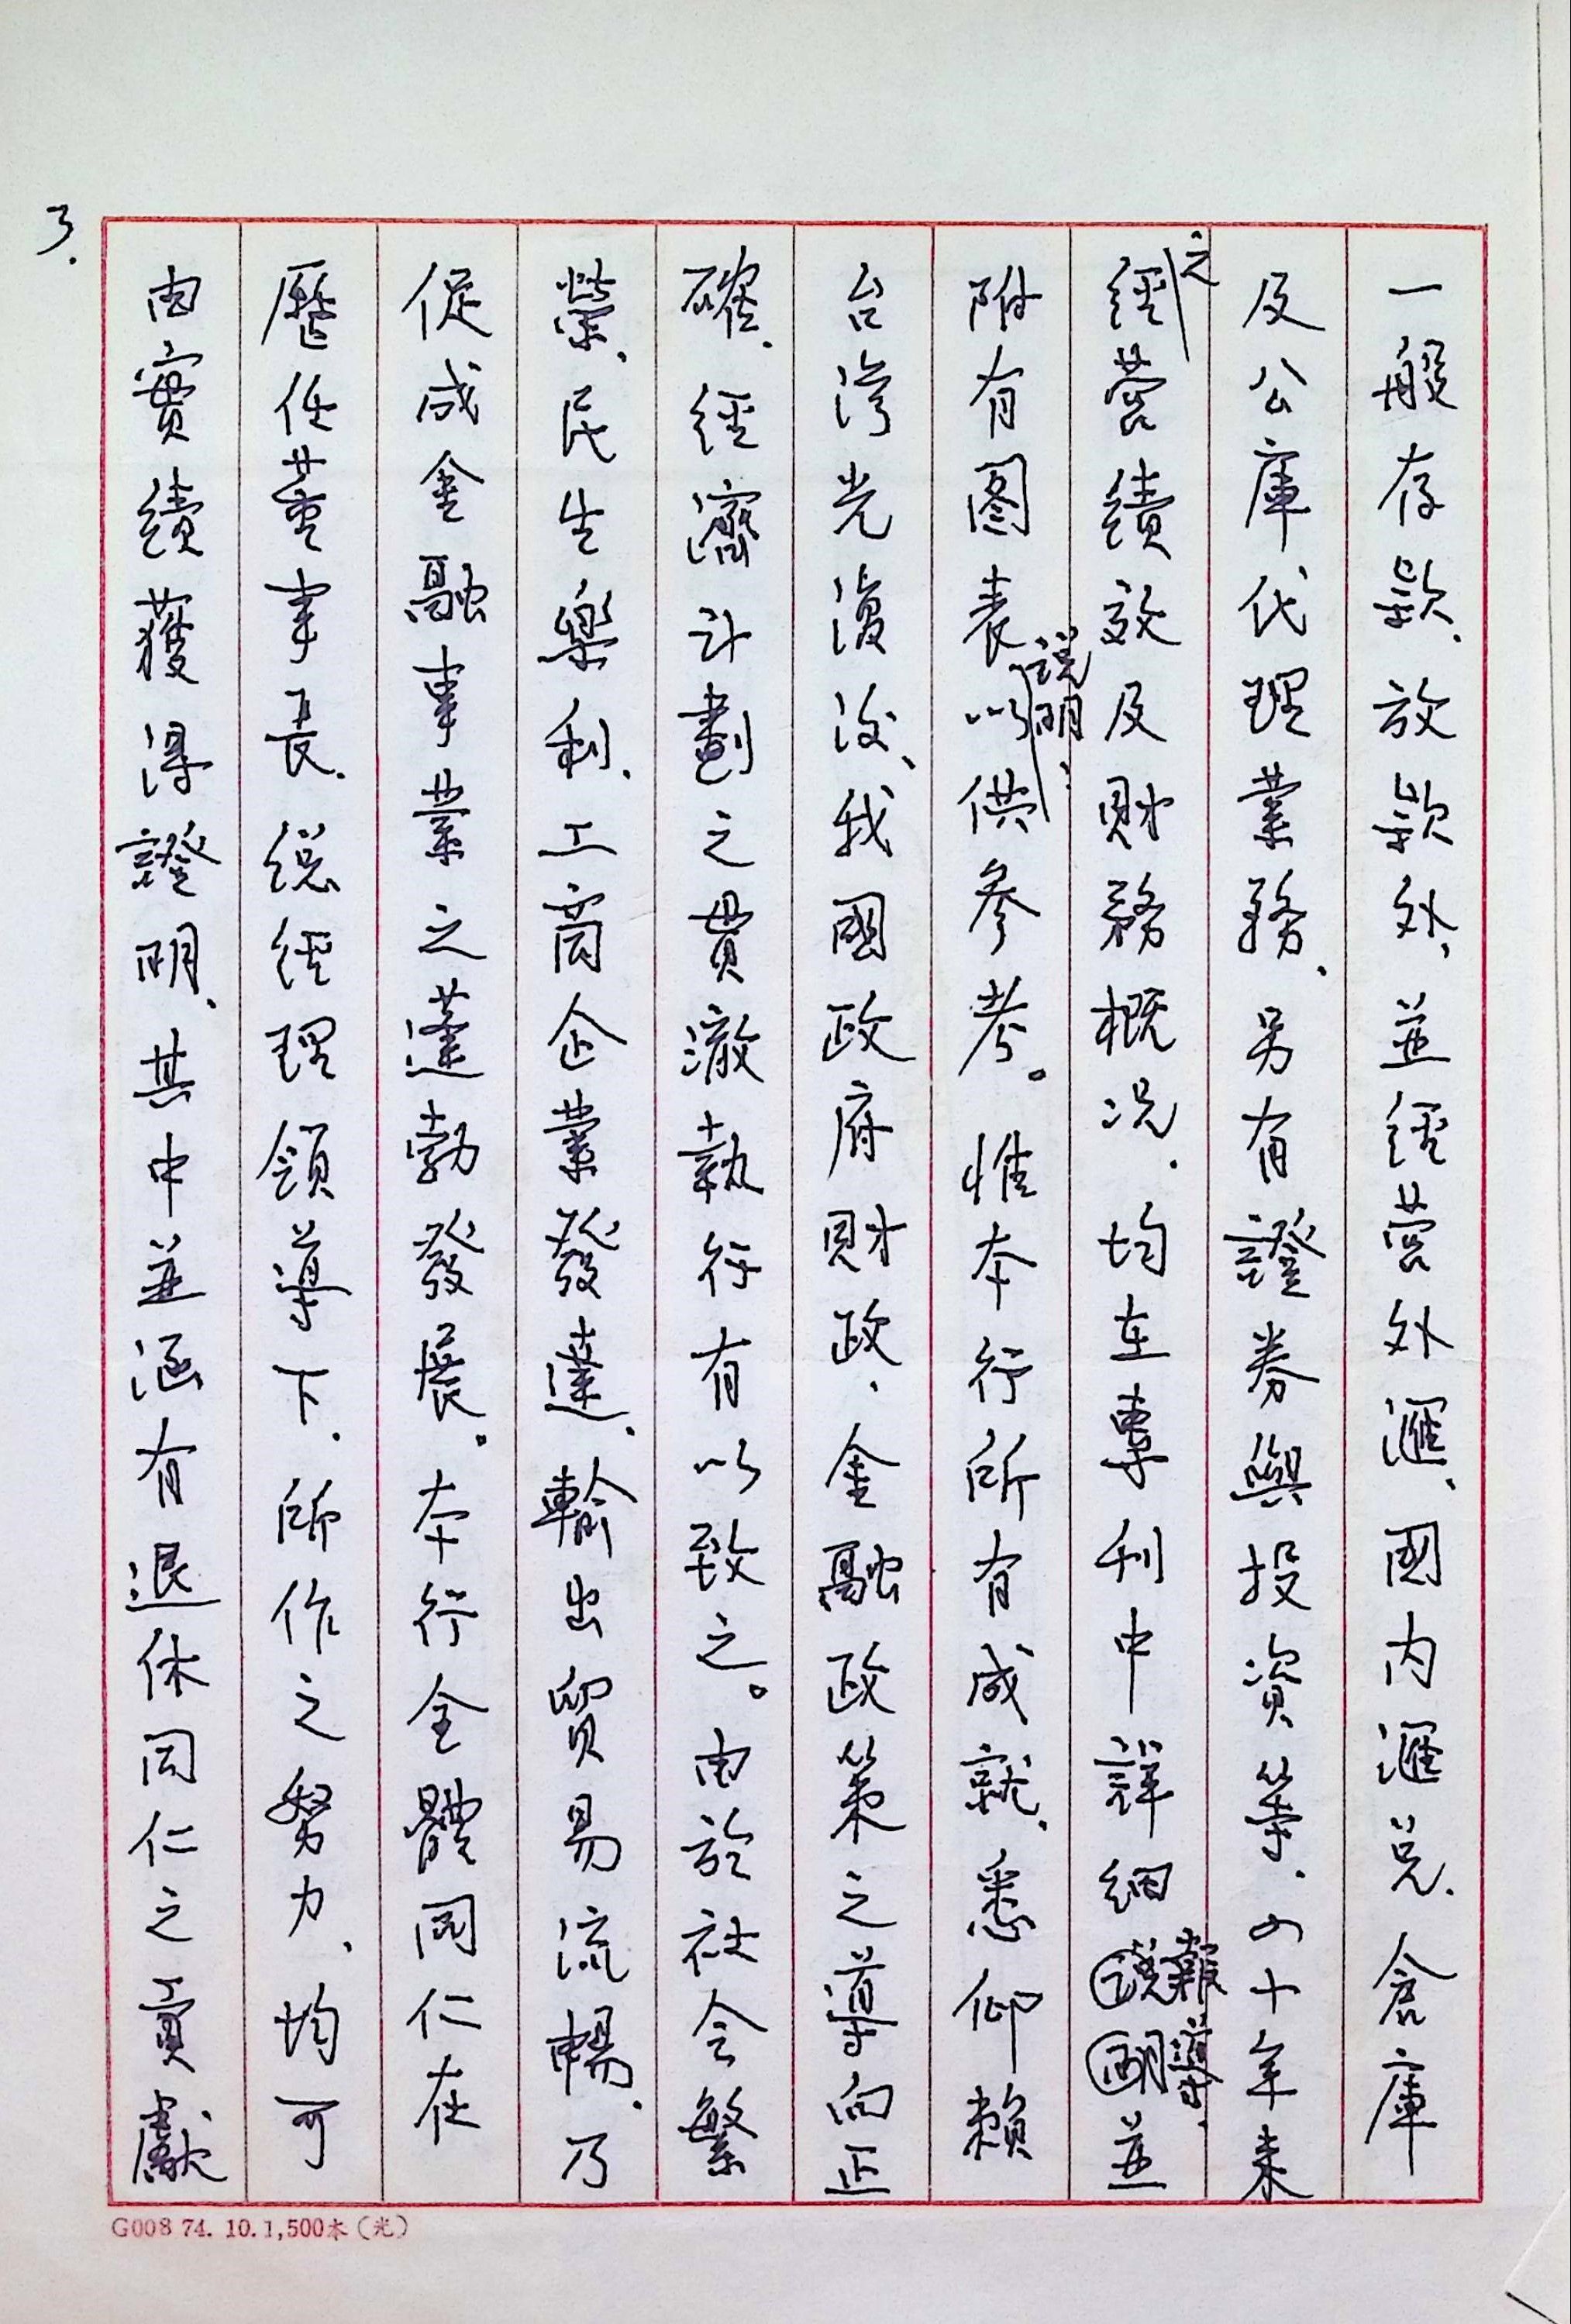 一般存款、放款外、並經營外滙、國內滙兌、倉庫
及公庫代理業務、另有證券與投資等、四十年來
之經營績效及財務概况、均在專刊中詳細報導、並
附有圖表說明以供參考。惟本行所有成就、悉仰賴
台灣光復後、我國政府財政、金融政策之導向正
確、經濟計劃之貫澈執行有以致之。由於社會繁
榮、民生樂利、工商企業發達、輸出貿易流暢、乃
促成金融事業之蓬勃發展。本行全體同仁在
歷任董事長、總經理領導下、所作之努力、均可
由實績獲得證明、其中並涵有退休同仁之貢獻
3.
G008 74. 10. 1,500本（光）